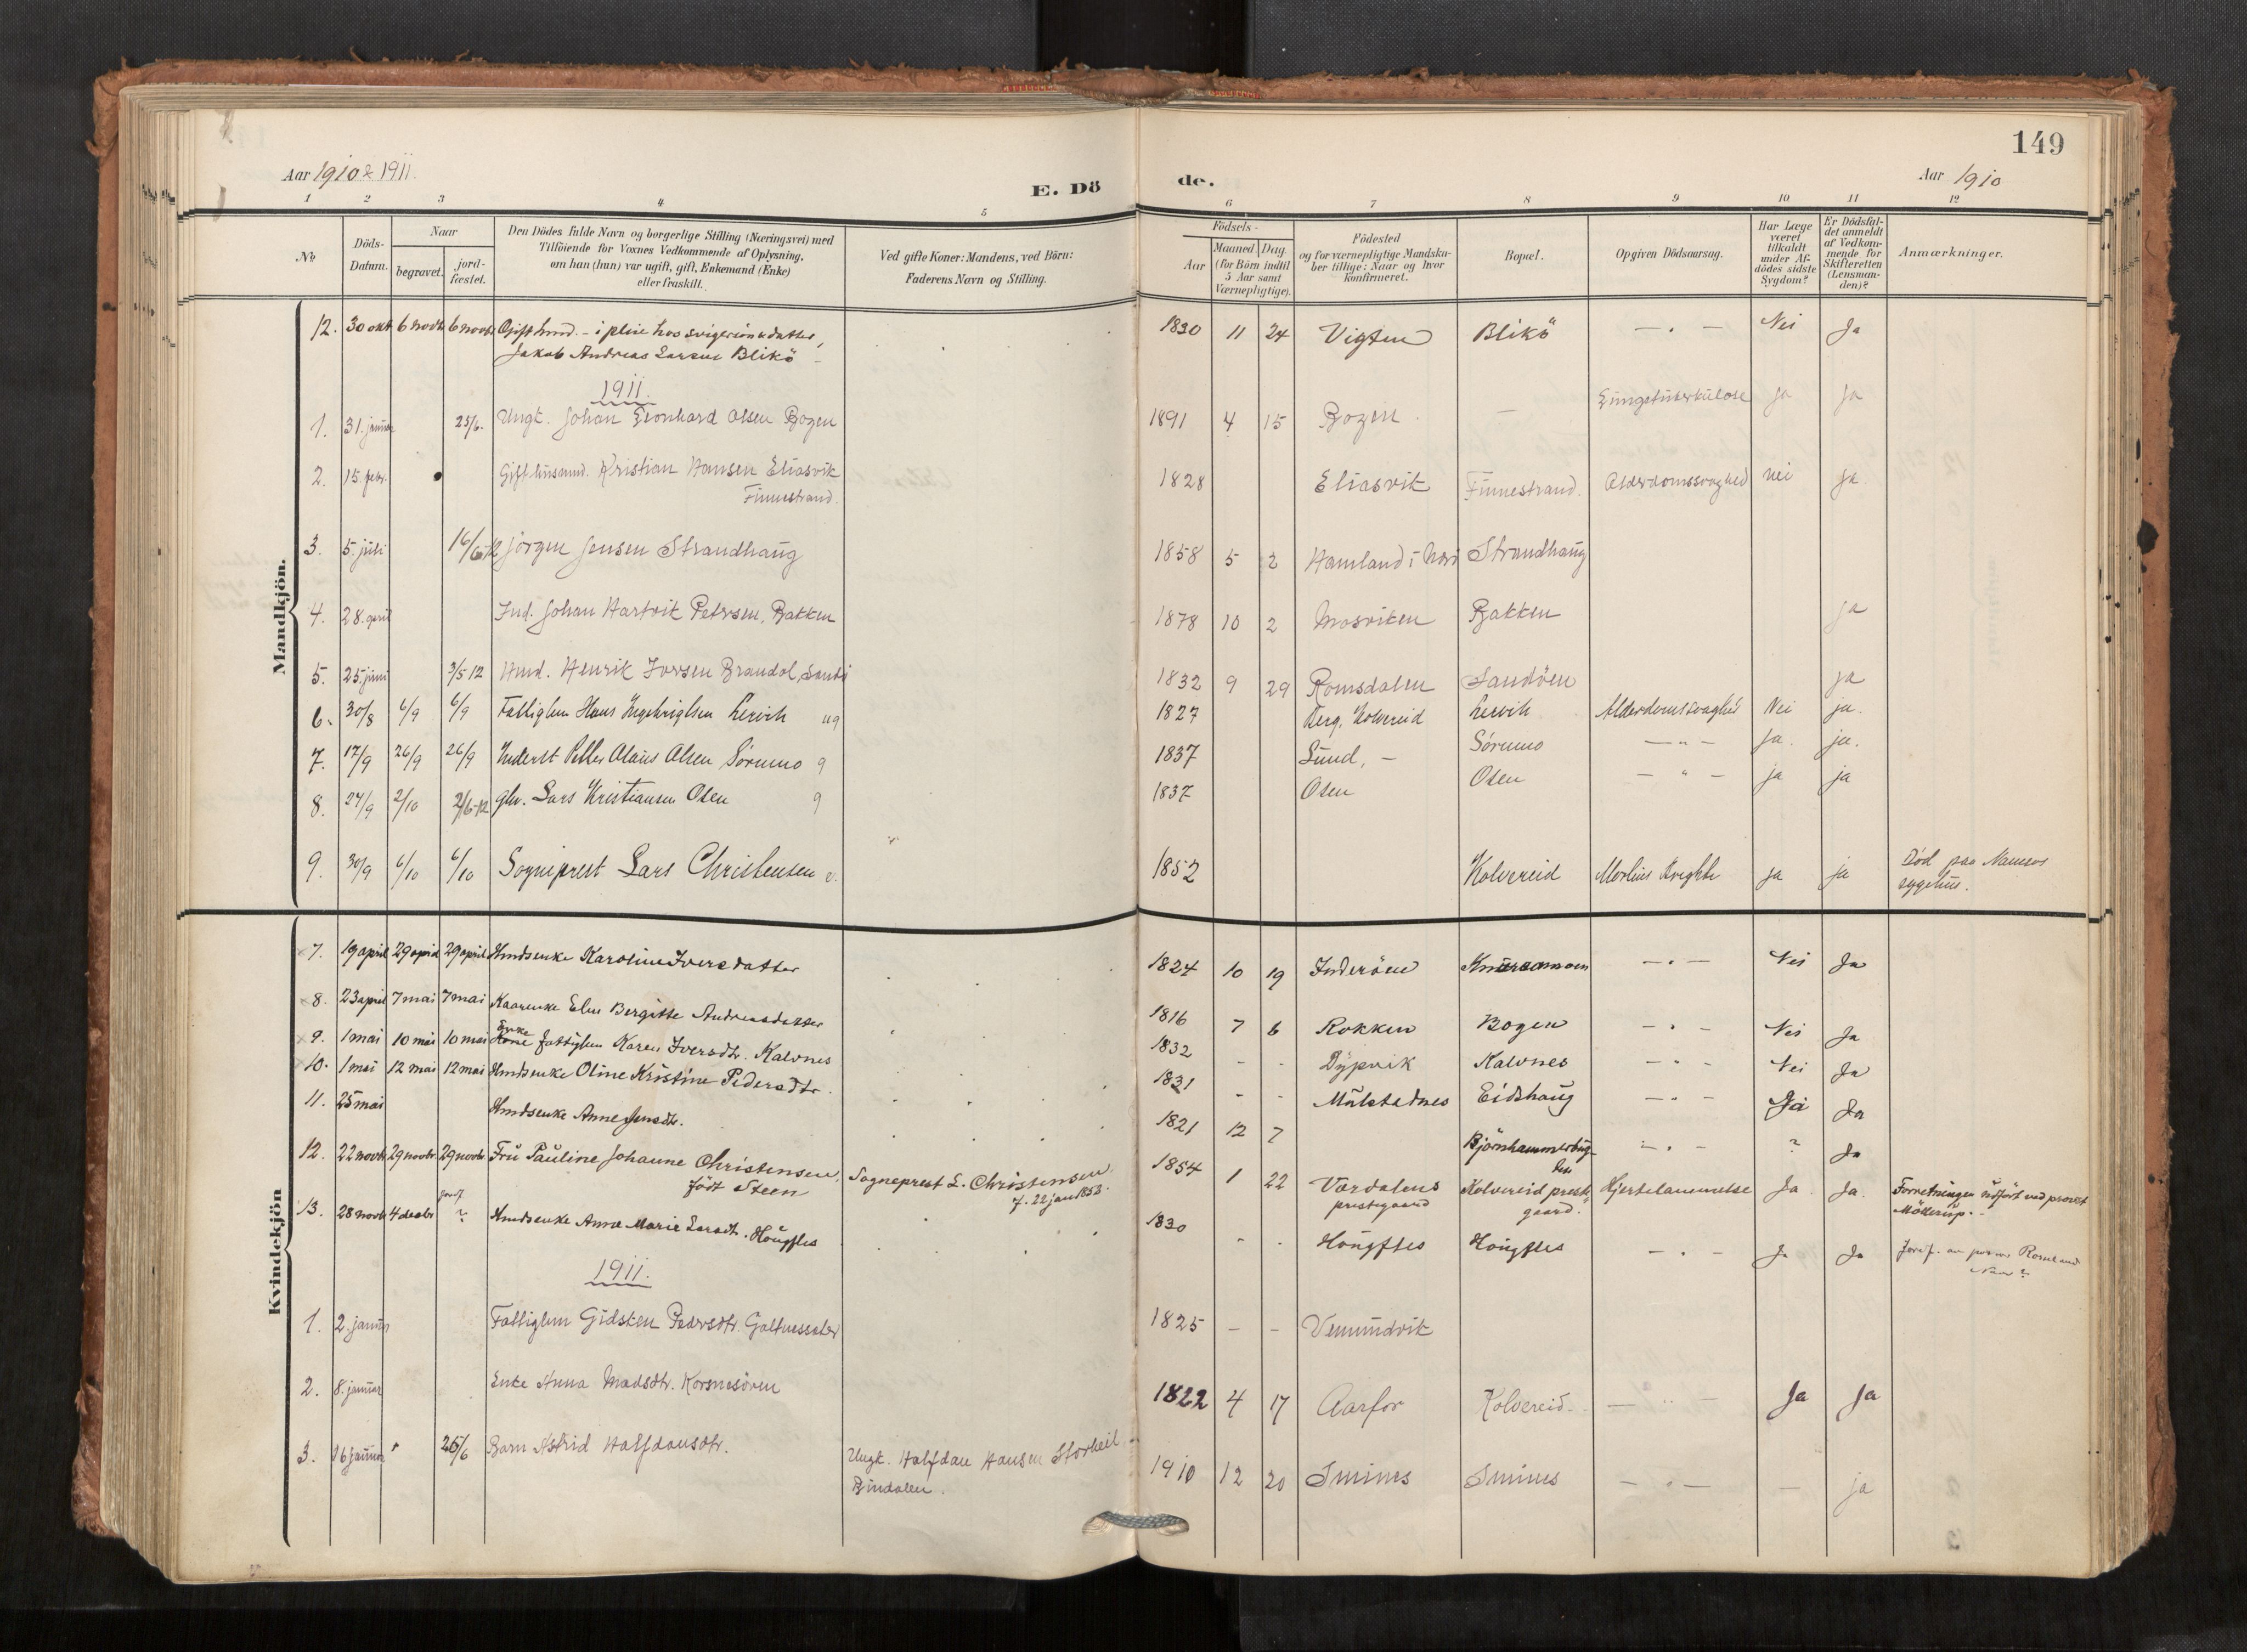 149
Aar 1910 & 1911.
E. Dö
de.
Aar 1910
1 2 3 4 5 6 7 8 9 10 11 12
No
Döds-Datum.
Naar
begravet.
jord-fæstet.
Den Dödes fulde Navn og borgerlige Stilling (Næringsvei) med
Tilföiende for Voxnes Vedkommende af Oplysning,
om han (hun) var ugift, gift, Enkemand (Enke)
eller fraskilt.
Ved gifte Koner: Mandens, ved Börn:
Faderens Navn og Stilling.
Födsels-
Aar
Maaned. Dag.
(for Börn indtil
5 Aar samt
Værnepligtige).
Födested
og for værnepligtige Mandskaber tillige: Naar og hvor
konfirmeret.
Bopæl.
Opgiven Dödsaarsag.
Har Læge
været
tilkaldt
under Afdödes sidste
Sygdom?
Er Dödsfaldet anmeldt
af Vedkommende for
Skifteretten
(Lensmanden)?
Anmærkninger.
Mandkjön.
12. 30 okt 6 novb 6 novb Gift hmd. - i pleie hos svigersön & datter, 1830 11 24 Vigten Blikö - " - Nei Ja
Jakob Andreas Larsen Blikö
1911.
1. 31. januar 25/6. Ungk. Johan Leonhard Olsen Bogen 1891 4 15 Bogen - Lungetuberkulose ja ja
2. 15. febr. Gift husmd. Kristian Hansen Eliasvik 1828 Eliasvik Finnestrand. Alderdomssvaghed nei ja
Finnestrand.
3. 5. juli 16/6-12 Jörgen Jensen Strandhaug 1858 5 2 Hamland i Strandhaug
4. 28. april Ind. Johan Hartvik Petersen, Bakken 1878 10 2 Mosviken Bakken ja
5. 25. juni 3/5 12 Hmd. Henrik Iversen Brandol, 1832 9 29 Romsdalen Sandöen ja
6. 30/8 6/9 6/9 Fattiglem Hans Lervik ug 1827 Kolvereid Lervik Alderdomssvaghed Nei ja.
7. 17/9 26/9 26/9 Inderst Petter Olaus Olsen Sörumo g 1837 Sund, - Sörumo - " - ja. ja.
8. 24/9 2/10 2/6-12 glv. Lars Kristiansen Osen g 1837 Osen Osen - " - ja ja
9. 30/9 6/10 6/10 Sogneprest Lars Christensen e. 1852 Kolvereid Morbus Brightii ja ja Död paa Namsos
sygehus.
Kvindekjön
7. 19 april 29 april 29 april Hmdsenke Karoline Iversdatter 1824 10 19 Inderöen - " - Nei Ja
8. 23 april 7 mai 7 mai Kaarenke Elen Bergitte Andreasdatter 1816 7 6 Rokken Bogen - " - Nei Ja
9. 1 mai 10 mai 10 mai Enke fattiglem Karen Iversdtr. Kalvnes 1832 - - Dypvik Kalvnes - " - Nei Ja
10. 1 mai 12 mai 12 mai Hmdsenke Oline Kristine Pedersdtr. 1831 - - Mulstadnes Eidshaug - " - Ja Ja
11. 25 mai Hmdsenke Anne Jensdtr. 1821 12 7 - " - ? Ja
12. 22 novb 29 novbr 29 novbr Fru Pauline Johanne Christensen, Sogneprest L. Christensen 1854 1 22 Værdalens Kolvereid prest- Hjertelammelse Ja Ja. Forretningen udfört ved provst
född Steen f. 22 jan 1852. prestegaard gaard. Möllerup.
13. 28 novb 4 decbr ? Hmdsenke Anne Marie Larsdtr. Höugfles 1830 - - Höugfles Höugfles - " - Ja Ja
1911.
1. 2. januar Fattiglem Gidsken Pedersdtr. 1825 - - Vemundvik
2. 8. januar Enke Anna Madsdtr. Korsnesören 1822 4 17 Aarfor Kolvereid. - " - Ja Ja
3. 16 januar 25/6 Barn Astrid Halfdansdtr. Ungk. Halfdan Hansen Storheil 1910 12 20 Smines Smines - " - - ja
Bindalen.